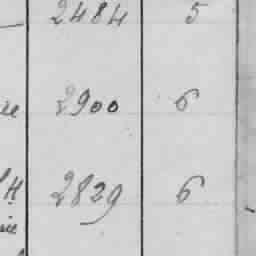 2484 5
2900 6
2829 6